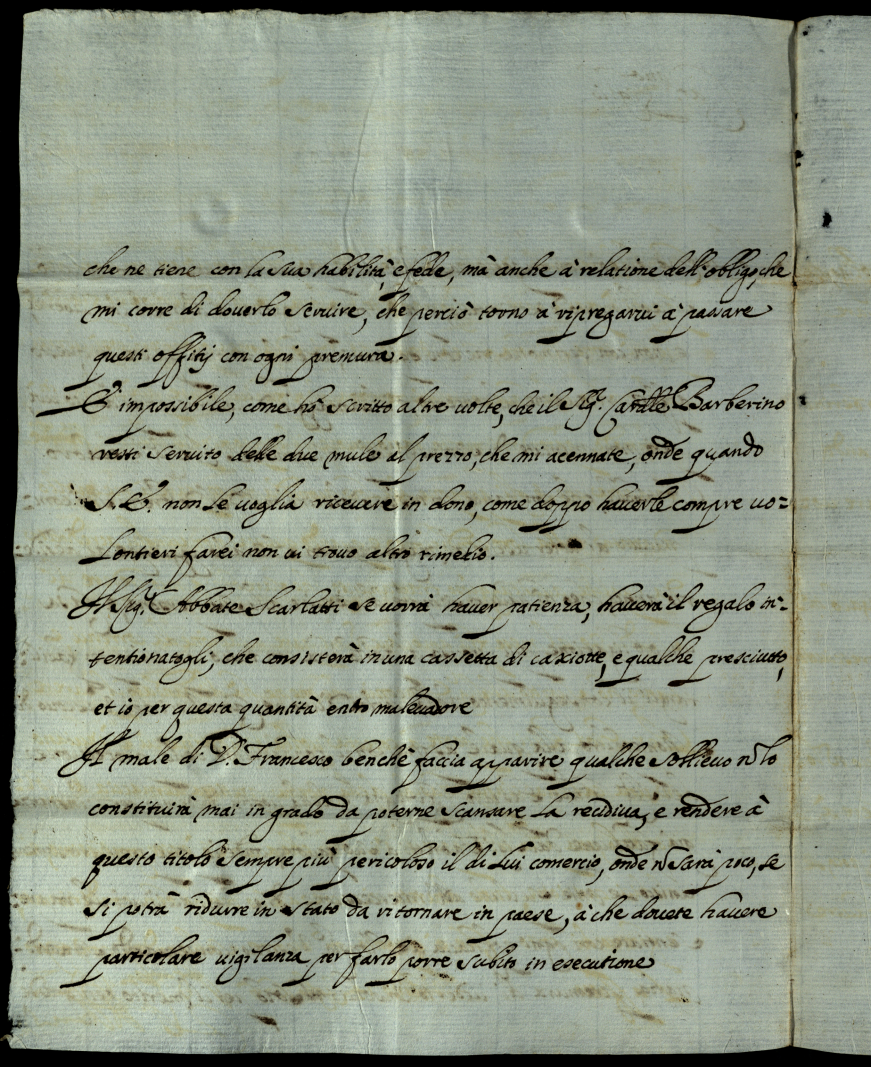 che ne tiene con la sua habilità, e fede, mà anche à relatione dell'obligo, che
mi corre di douerlo seruire, che perciò torno à ripregarui à passare
questi offitij con ogni premura.
E' impossibile, come hò scritto altre uolte, che il Sig.r Cardle Barberino
resti seruito delle due mule al prezzo, che mi acennate, onde quando
S. E. non le uoglia riceuere in dono, come doppo hauerle compre uo=
lontieri farei non ui trouo altro rimedio.
Il Sig.r Abbate Scarlatti se uorrà hauer patienza, hauerà il regalo in=
tentionatogli, che consisterà in una cassetta di caxiotte, e qualche presciutto,
et io per questa quantità entro maleuadore
Il male di D. Francesco benchè faccia apparire qualche sollieuo nō lo
constituirà mai in grado da poterne scansare la recidiua, e rendere à
questo titolo sempre più pericoloso il di lui comercio, onde nō sarà poco, se
si potrà ridurre in stato da ritornare in paese, à che douete hauere
particolare uigilanza per farlo porre subito in esecutione